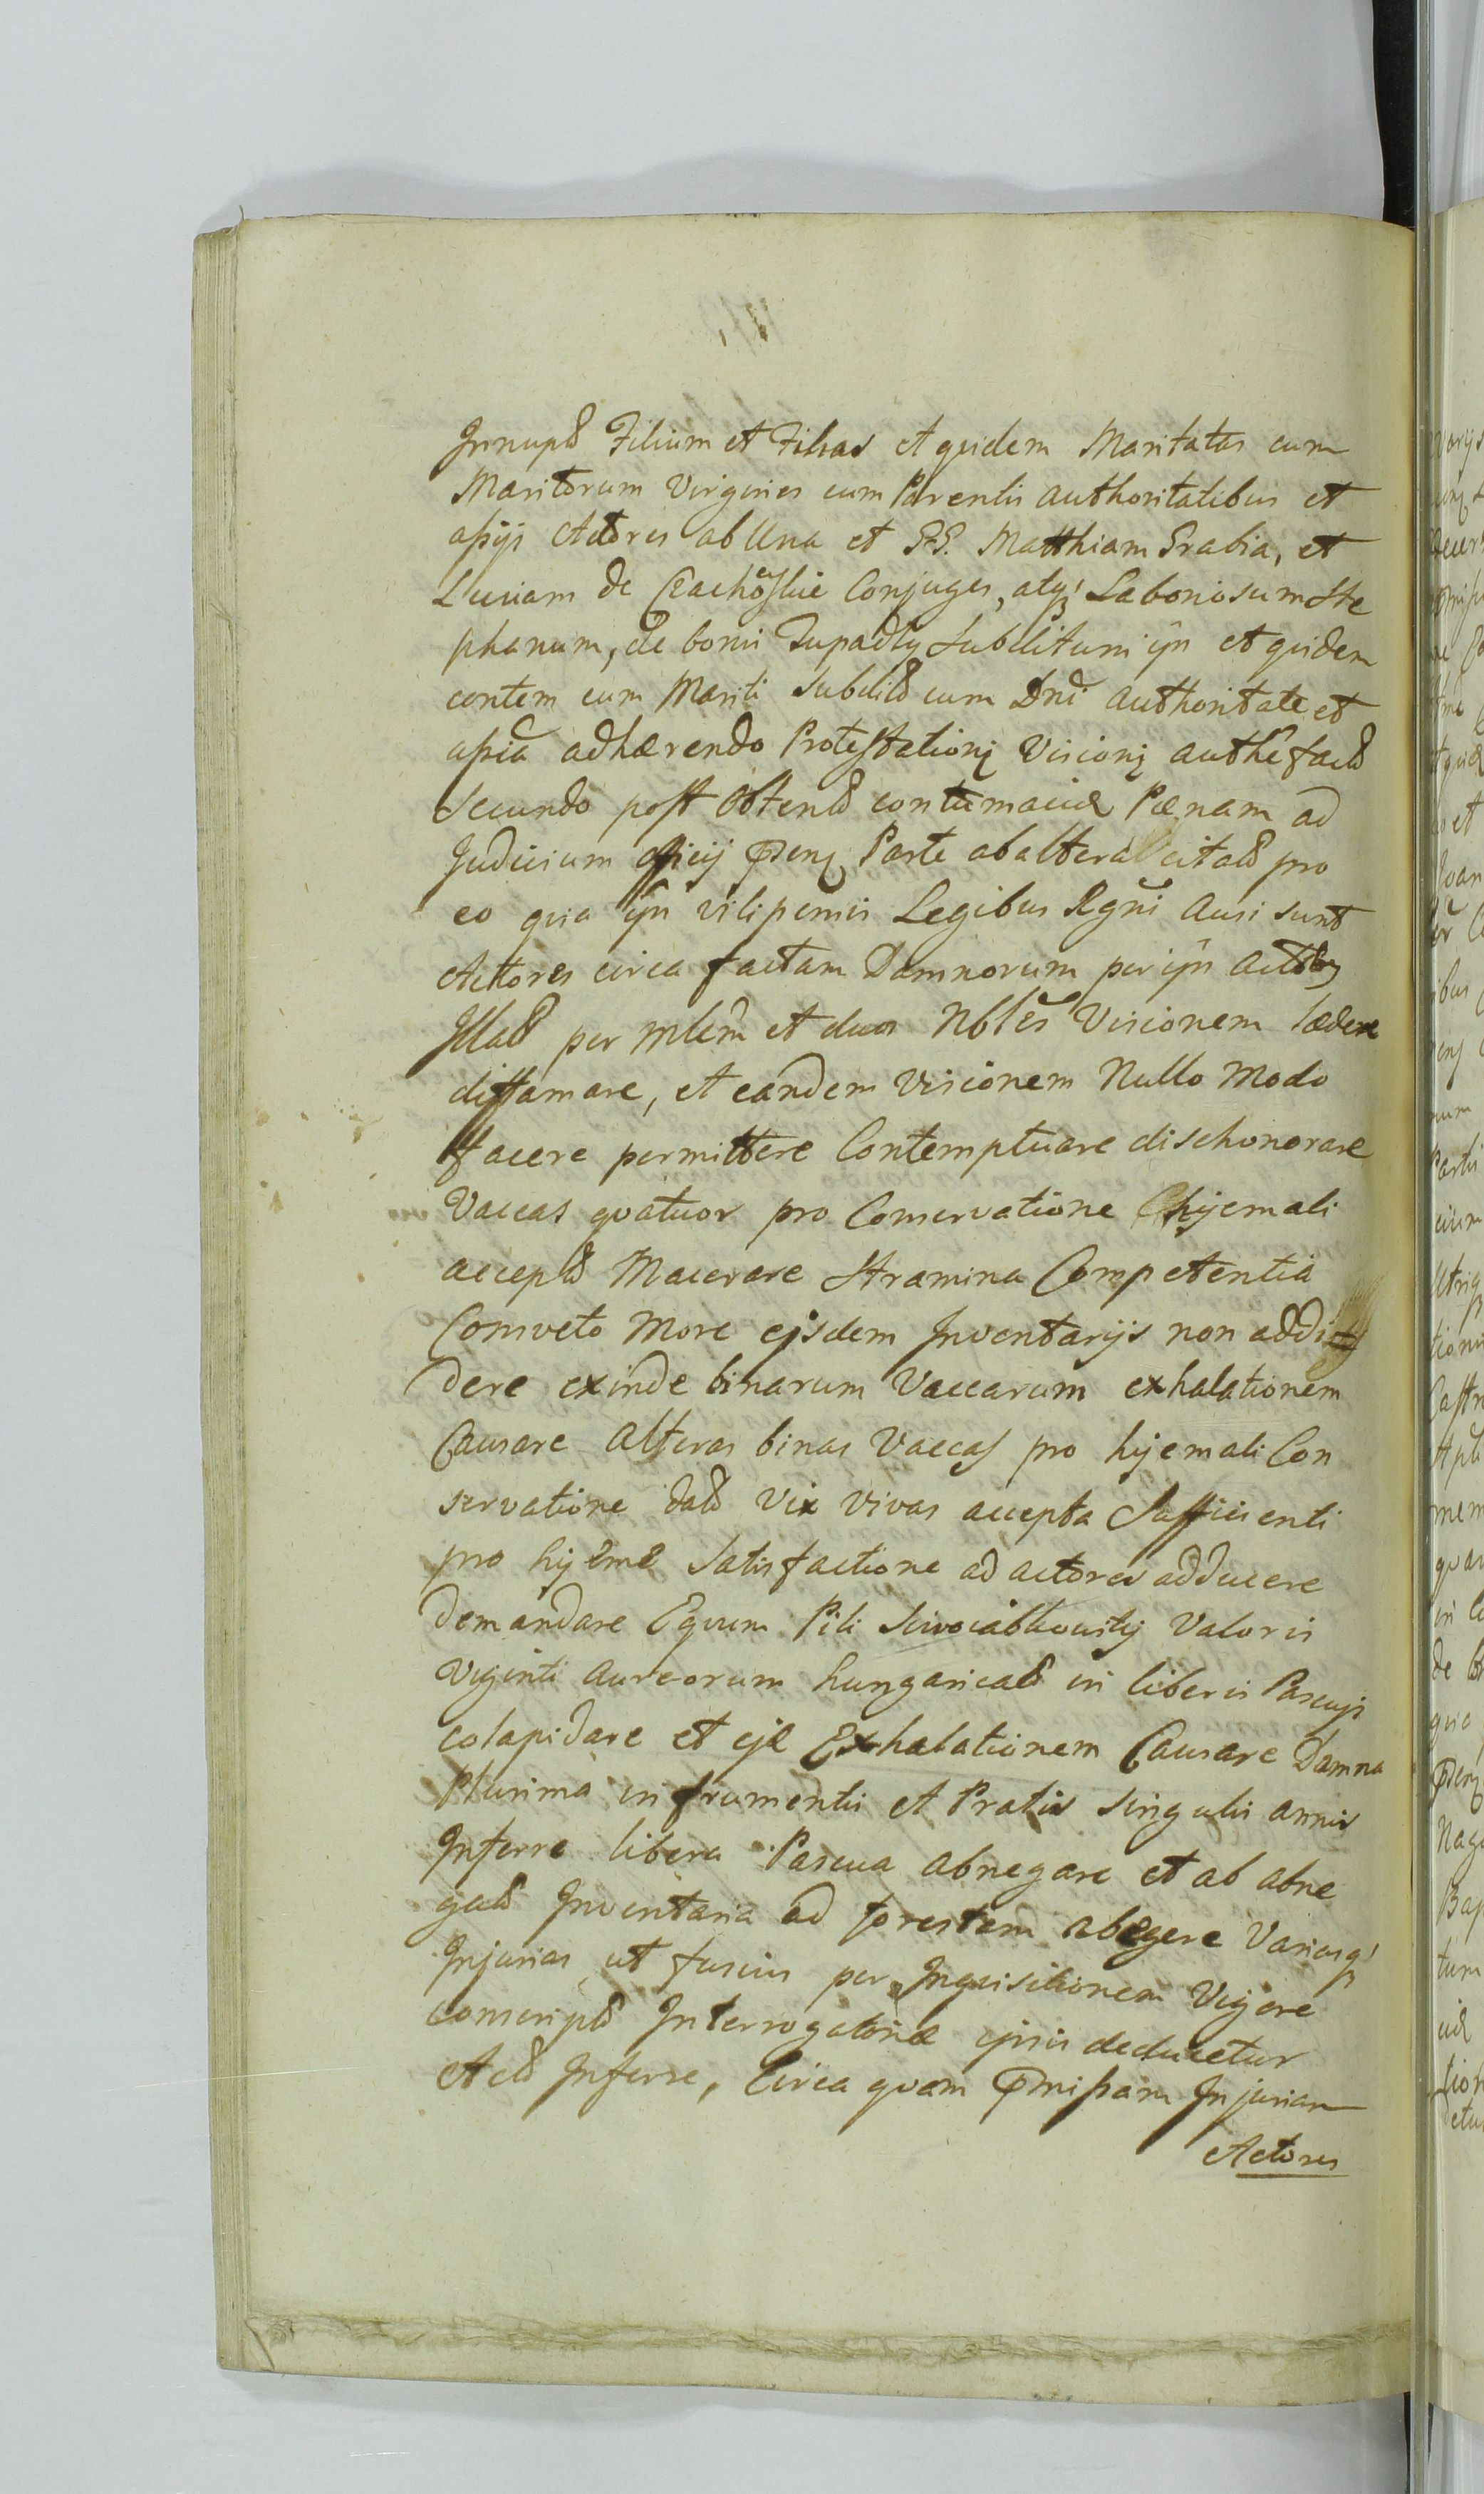 Innupt Filium et Filias et quidem Maritatas cum
Maritorum Virgines cum Parentis authoritatibus et
assijs Actores ab Una et GG. Matthiam Grabia, et
Luciam de Conjuges, atq Laboriosum Ste
phanum, de bonis Zupadly Subditum ijn et quidem
contem cum Mariti Subdit cum Dni authoritate et
assia adhærendo Protestationi Visioni authe fact
Secundo post Obtent contumaciæ Pænam ad
Judicium officij Parte ab altera citat pro
eo quia ijn vilipensis Legibus Rgni Ausi sunt
Actores circa factam Damnorum per ijn Actobus
Illat per mlem et duos Nbles Visionem lædere
diffamare, et eandem Visionem Nullo Modo
facere permittere Contemptuare dischonorare
Vaccas quatuor pro Conservatione hyemali
accept Macerare Stramina Competentia
Consveto More ejsdem Inventarijs non addi
dere exinde binarum Vaccarum exhalationem
Causare Alteras binas Vaccas pro hyemali Con
servatione dat Vix Vivas accepta Sufficienti
pro hyeme Satisfactione ad actores adducere
demandare Equum Pili Valoris
Viginti Aureorum hungarical in liberis Pascujs
colapidare et eje Exhalationem Causare Damna
Plurima in frumentis et Pratis singulis annis
Inferre libera Pascua abnegare et ab abne
gat Inventaria ad forestam abegere Variasq
Injurias ut fusius per Inquisitionem Vigore
conscript Interrogatoriæ ipsis deducetur
Act Inferre, Circa quam Injuriam
Actores